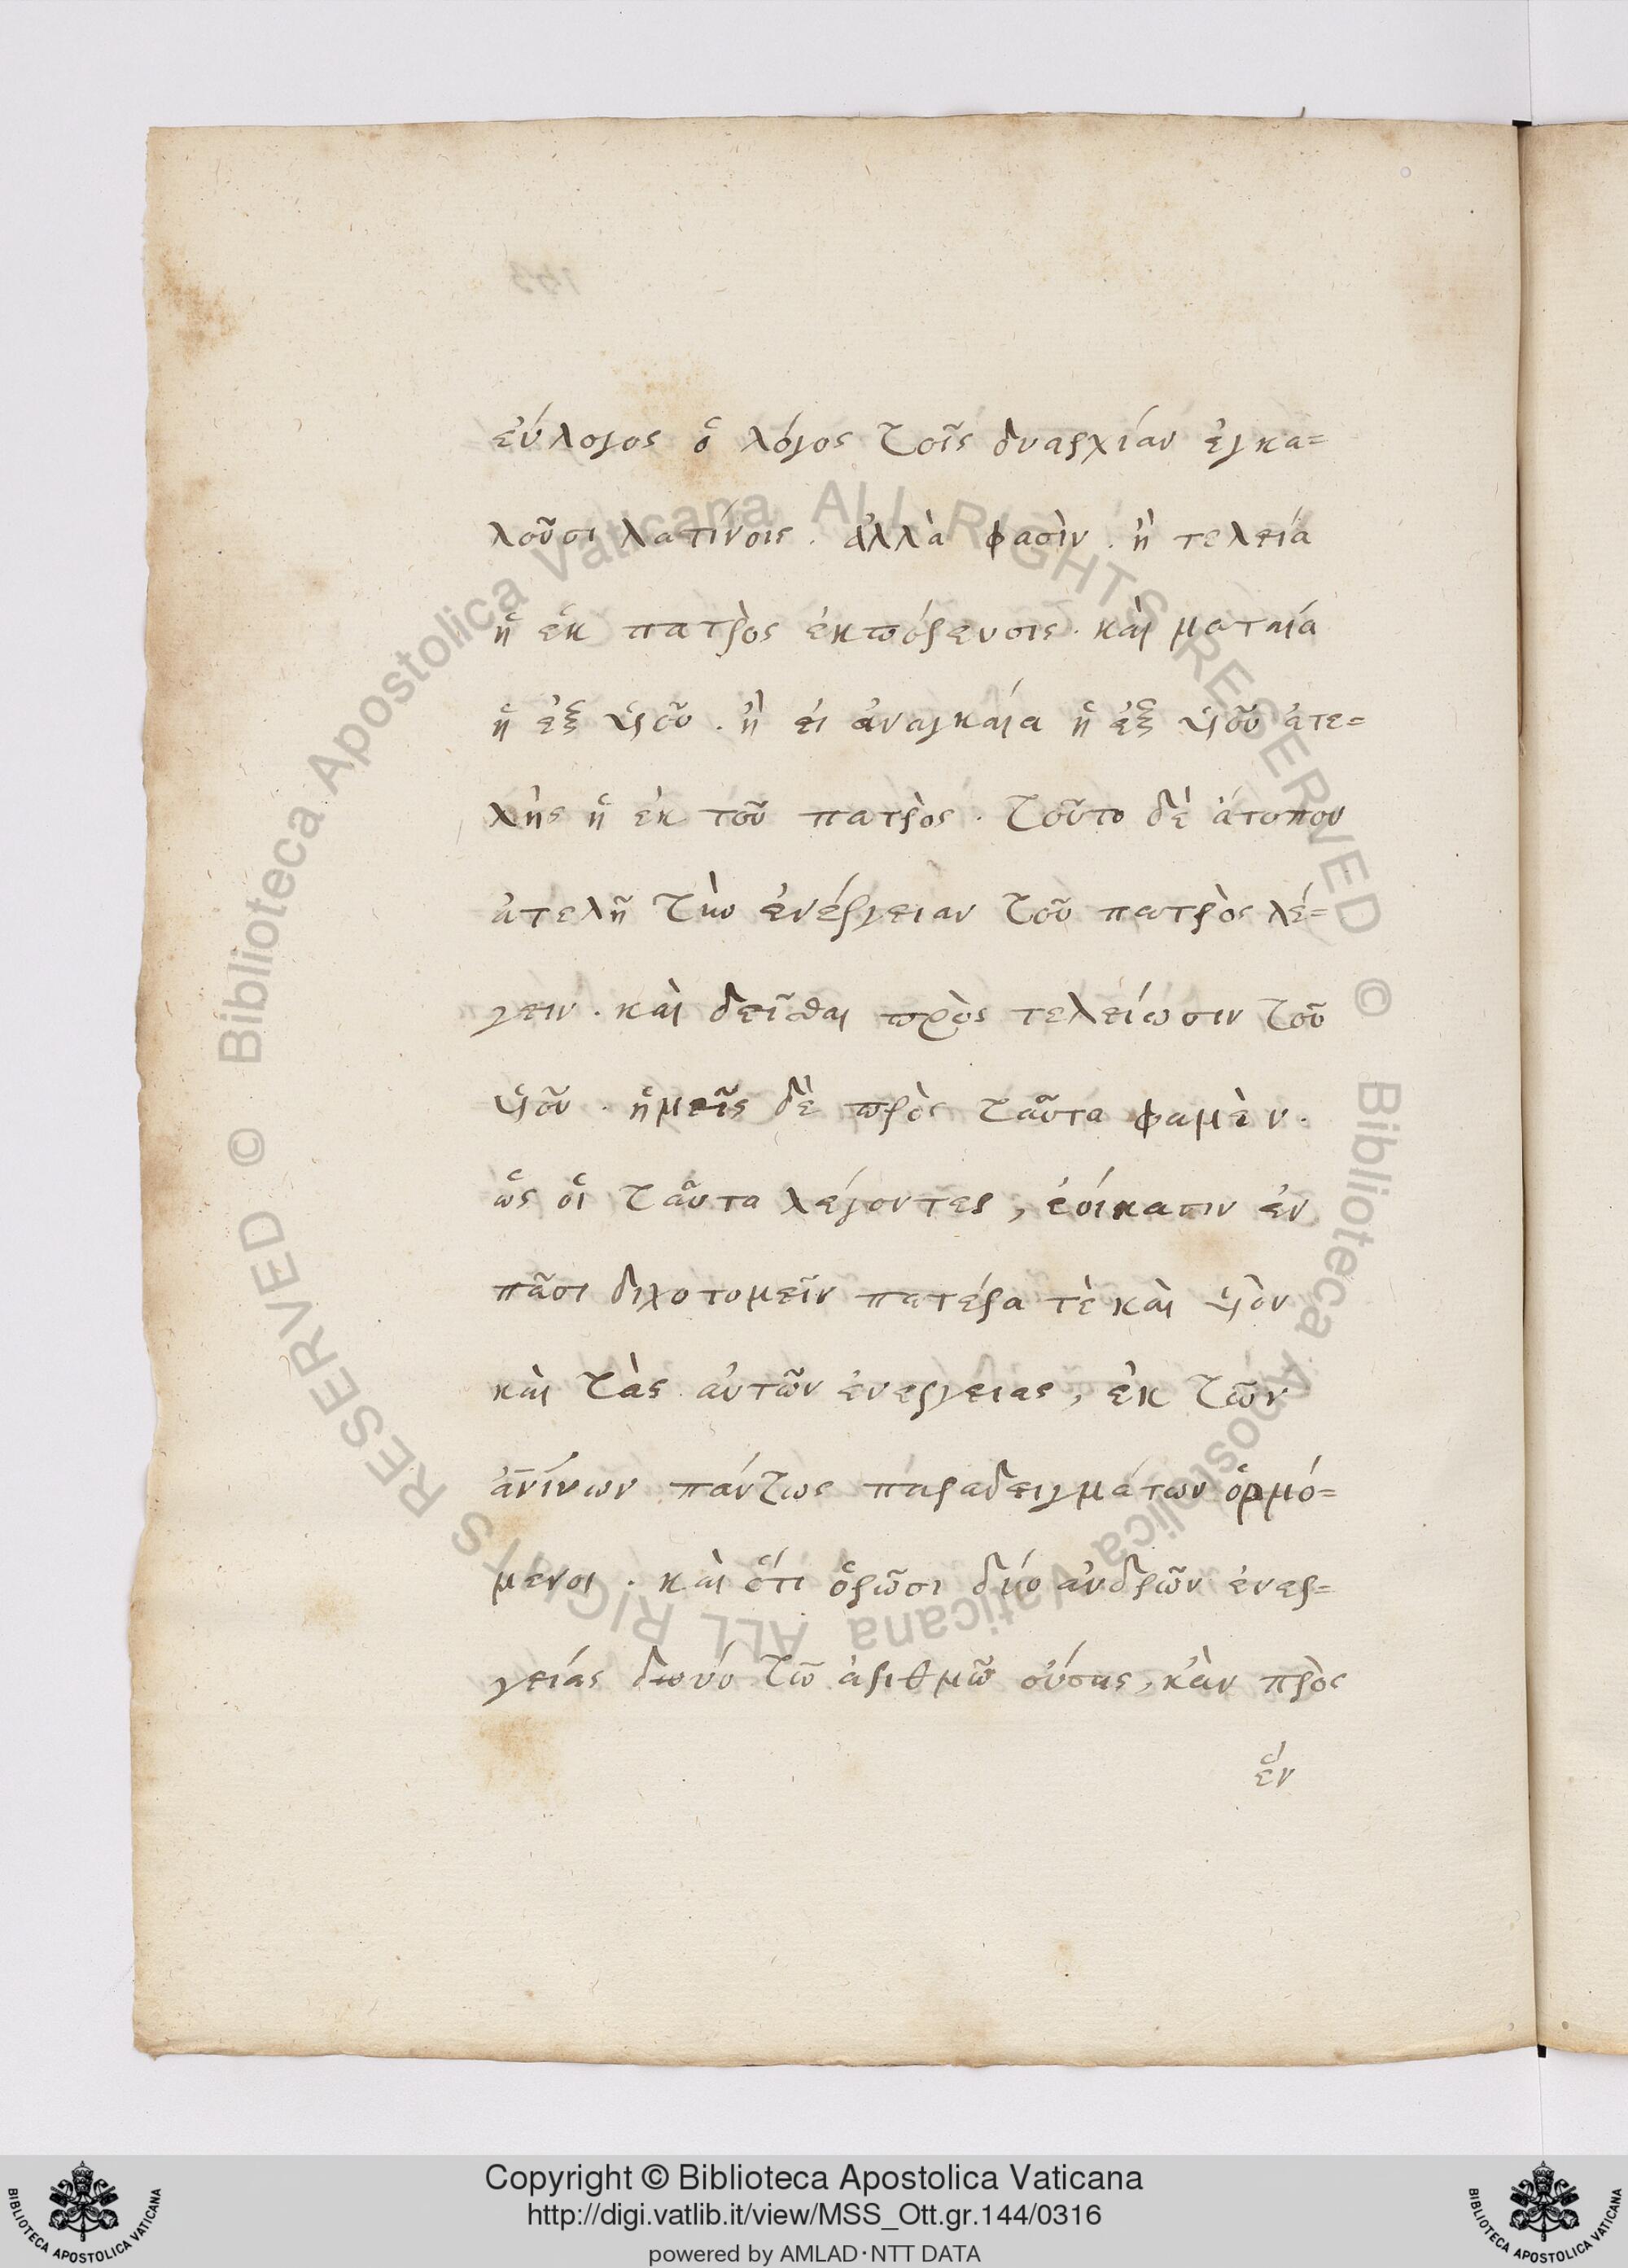 εὐλογος ὁ λόγος τοῖς δυαρχίαν ἐγκα=
λοῦσι λατίνοις. ἀλλὰ φασὶν. ἢ τελεία
ἡ ἐκ πατρὸς ἐκπόρευσις. καὶ ματαία
ἡ ἐξ υἱοῦ. ἢ εἰ ἀναγκαία ἡ ἐξ υἱοῦ ἀτε=
λὴς ἡ ἐκ τοῦ πατρὸς. τοῦτο δὲ ἄτοπον
ἀτελῆ τὴν ἐνέργειαν τοῦ πατρὸς λέ=
γειν. καὶ δεῖσθαι πρὸς τελείωσιν τοῦ
υἱοῦ. ἡμεῖς δὲ πρὸς ταῦτα φαμὲν.
ὡς οἱ ταῦτα λέγοντες, ἐοίκασιν ἐν
πᾶσι διχοτομεῖν πατέρα τὲ καὶ υἱὸν
καὶ τὰς αὐτῶν ἐνεργειας, ἐκ τῶν
ἀνίνων πάντως παραδειγμάτων ὁρμό=
μενοι. καὶ ὅτι ὁρῶσι δύο ἀνδρῶν ἐνερ=
γείας τῶ ἀριθμῶ οὔσας, κἂν πρὸς
ἓν
Copyright © Biblioteca Apostolica Vaticana
http://digi.vatlib.it/view/MSS_Ott.gr.144/0316
powered by AMLAD·NTT DATA
BIBLIOTECA APOSTOLICA VATICANA
BIBLIOTECA APOSTOLICA VATICANA
© Biblioteca Apostolica Vaticana ALL RIGHTS RESERVED
© Biblioteca Apostolica Vaticana ALL RIGHTS RESERVED